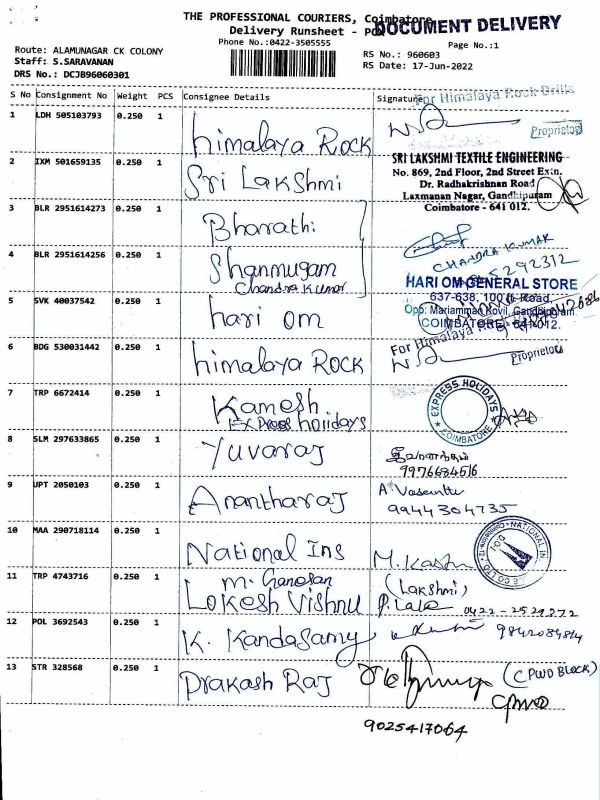 THE PROFESSIONAL COURIERS, Coimbatore
Delivery Runsheet - POD
DOCUMENT DELIVERY
Phone No.:0422-3505555
Page No.:1
Route: ALAMUNAGAR CK COLONY
RS No.: 960603
Staff: S.SARAVANAN
RS Date: 17-Jun-2022
DRS No.: DCJB96060301
S No Consignment No Weight PCS Consignee Details Signature
For Himalaya Rock Drills
1 LDH 505103793 0.250 1 himalaya ROCK
Proprietor
2 IXM 501659135 0.250 1 Sri Lakshmi
SRI LAKSHMI TEXTILE ENGINEERING
No. 869, 2nd Floor, 2nd Street Extn.
Dr. Radhakrishnan Road
Laxmanan Nagar, Gandhipuram
Coimbatore - 641 012.
3 BLR 2951614273 0.250 1 Bharathi
CHANDRA KUMAR
4 BLR 2951614256 0.250 1 Shanmugam
Chandra Kumar
HARI OM GENERAL STORE
637-638, 100 ft. Road,
Opp: Mariamman Kovil, Gandhipuram
COIMBATORE - 641012.
5 SVK 40037542 0.250 1 hari om
6 BDG 530031442 0.250 1 himalaya ROCK
For Himalaya Rock
Proprietor
7 TRP 6672414 0.250 1 Kamesh
Express holidays
EXPRESS HOLIDAYS
COIMBATORE
8 SLM 297633865 0.250 1 Yuvaraj
9976684516
9 UPT 2050103 0.250 1 Anantharaj
9944304735
10 MAA 290718114 0.250 1 National Ins
11 TRP 4743716 0.250 1 M. Ganesan
Lokesh Vishnu
(Lakshmi)
P. Lala
12 POL 3692543 0.250 1 K. Kandasamy
13 STR 328568 0.250 1 Prakash Raj
(CPWD BLOCK)
CPWD
9025417064